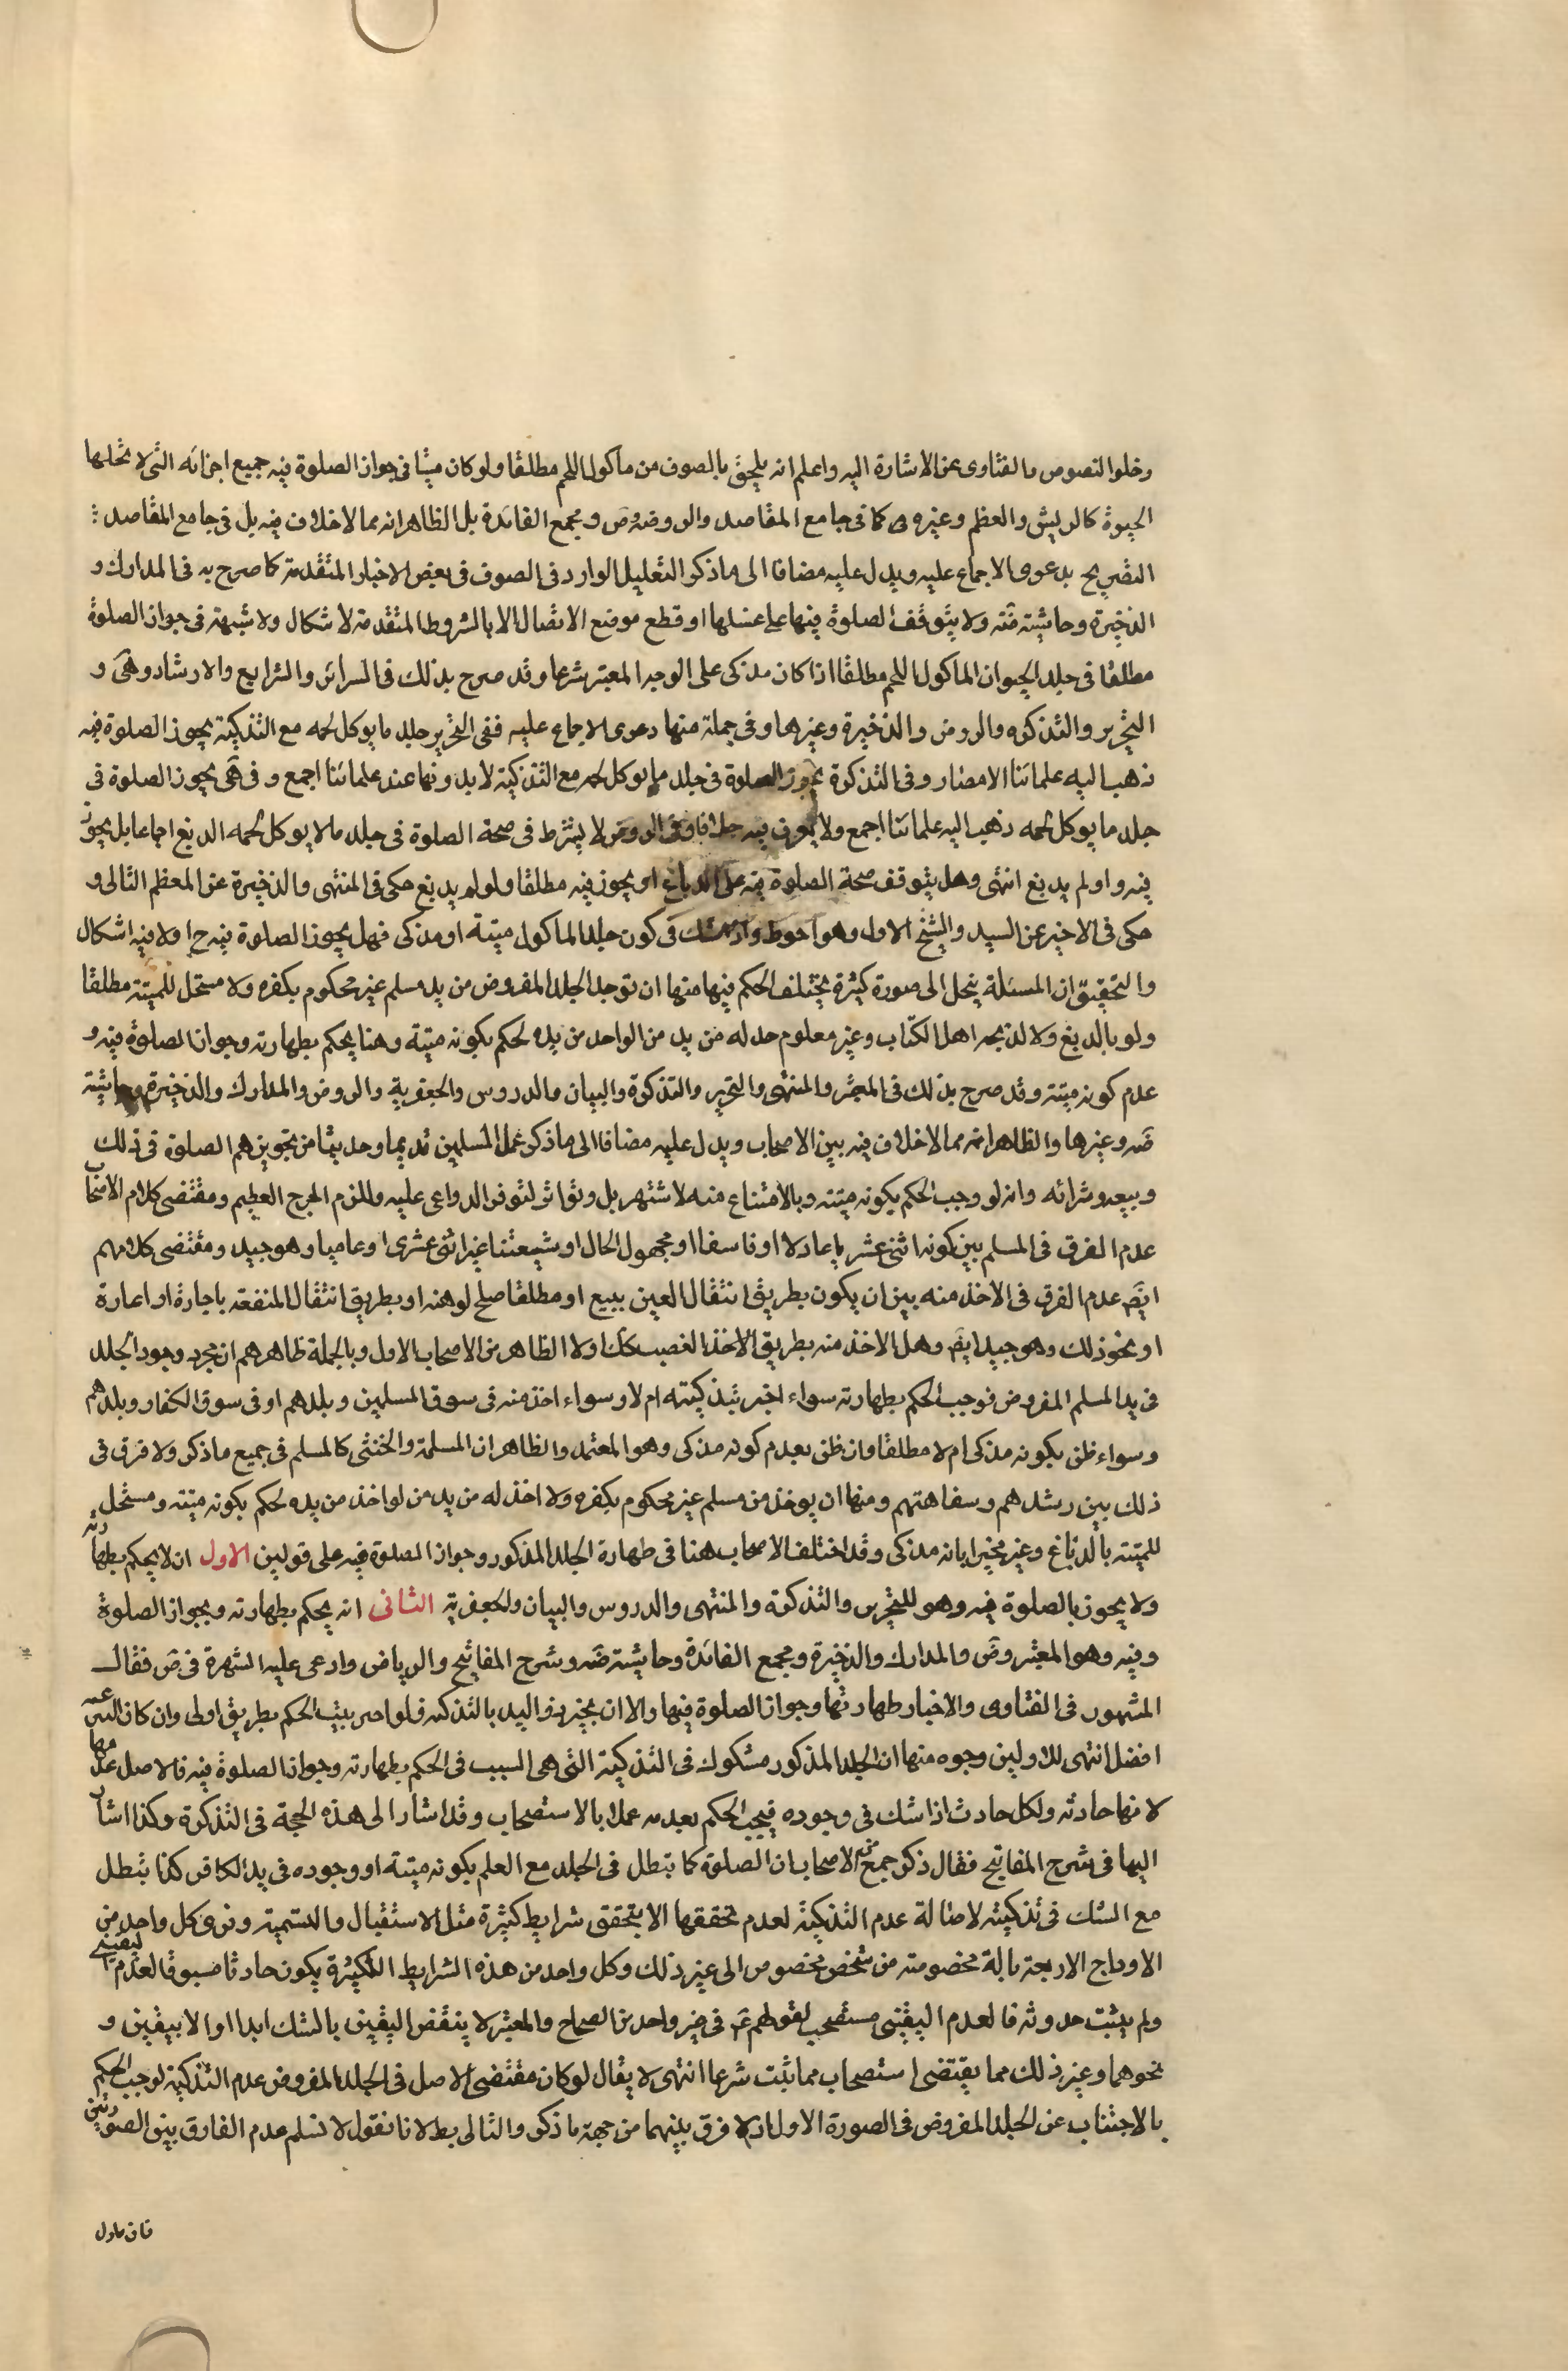 وخلوا النصوص والفتاوى عن الاشارة اليه واعلم انه يلحق بالصوف من ماكول اللحم مطلقا ولو كان ميتا فى جواز الصلوة فيه جميع اجزائه التى لا تحلها
الحيوة كالريش والعظم وغيرهما كما فى جامع المقاصد والروضة وض ومجمع الفائدة بل الظاهر انه مما لا خلاف فيه بل فى جامع المقاصد
التصريح بدعوى الاجماع عليه ويدل عليه مضافا الى ما ذكر التعليل الوارد فى الصوف فى بعض الاخبار المتقدمة كما صرح به فى المدارك و
الذخيرة وحاشيته ولا يتوقف الصلوة فيها على غسلها او قطع موضع الاتصال الا بالشروط المتقدمة لا شكال ولا شبهة فى جواز الصلوة
مطلقا فى جلد الحيوان الماكول اللحم مطلقا اذا كان مذكى على الوجه المعتبر شرعا وقد صرح بذلك فى السرائر والشرايع والارشاد وهى و
التحرير والتذكره والروض والذخيرة وغيرها وفى جملة منها دعوى الاجماع عليه ففى التحرير جلد ما يوكل لحمه مع التذكية يجوز الصلوة فيه
ذهب اليه علمائنا الامصار وفى التذكرة يجوز الصلوة فى جلد ما يوكل لحمه مع التذكية لا بدونها عند علمائنا اجمع وفى هى يجوز الصلوة فى
جلد ما يوكل لحمه ذهب اليه علمائنا اجمع ولا يعرف فيه خلافا وفى الروض لا يشترط فى صحة الصلوة فى جلد ما لا يوكل لحمه الدبغ اجماعا بل يجوز
فيه واو لم يدبغ انتهى وهل يتوقف صحة الصلوة فيه على الدباغ او يجوز فيه مطلقا ولو لم يدبغ حكى فى المنتهى والذخيرة عن المعظم الثانى و
حكى فى الاخير عن السيد والشيخ الاول وهو احوط واذا شك فى كون جلد الماكول ميتة او مذكى فهل يجوز الصلوة فيه ح او لا فيه اشكال
والتحقيق ان المسئلة ينحل الى صورة كثيرة يختلف الحكم فيها منها ان توجد الجلد المفروض من يد مسلم غير محكوم بكفره ولا مستحل للميتة مطلقا
ولو بالدبغ ولا لذبيحه اهل الكتاب وغير معلوم حد له من يد من الواحد من يده لحكم بكونه ميتة وهنا يحكم بطهارته وجواز الصلوة فيه و
عدم كونه ميتة وقد صرح بذلك فى المعتبر والمنتهى والتحرير والتذكرة والبيان والدروس والجعفرية والروض والمدارك والذخيرة وحاشيته
ضه وغيرها والظاهر انه مما لا خلاف فيه بين الاصحاب ويدل عليه مضافا الى ما ذكر عمل المسلمين قديما وحديثا من تجويزهم الصلوة فى ذلك
وبيعه وشرائه وانه لو وجب الحكم بكونه ميتة وبالامتناع منه لاشتهر بل وتواتر لتوفر الدواعى عليه وللزم الحرج العظيم ومقتضى كلام الاصحاب
عدم الفرق فى المسلم بين كونه اثنى عشر يا عادلا او فاسقا او مجهول الحال او شيعتنا غير اثنى عشرى او عاميا وهو جيد ومقتضى كلامهم
ايضَ عدم الفرق فى الاخذ منه بين ان يكون بطريق انتقال العين ببيع او مطلقا صلح لو هنه او بطريق انتقال المنفعة باجارة او اعارة
او نحو ذلك وهو جيد ايضَ وهل الاخذ منه بطريق الاخذ الغصب كك او لا الظاهر من الاصحاب الاول وبالجملة ظاهرهم ان مجرد وجود الجلد
فى يد المسلم المفروض فوجب الحكم بطهارته سواء اخبر بتذكيته ام لا وسواء اخذ منه فى سوق المسلمين وبلدهم او فى سوق الكفار وبلدهم
وسواء ظن بكونه مذكى ام لا مطلقا وان ظن بعدم كونه مذكى وهو المعتمد والظاهر ان المسلمة والخنثى كالمسلم فى جميع ما ذكر ولا فرق فى
ذلك بين رشدهم وسفاهتهم ومنها ان يوخذ من مسلم غير محكوم بكفره ولا اخذ له من يد من لو اخذ من يده لحكم بكونه ميتة ومستحل
للميتة بالدباغ وغير مخبر ابانه مذكى وقد اختلف الاصحاب هنا فى طهارة الجلد المذكور وجواز الصلوة فيه على قولين الاول ان لا يحكم بطهارته
ولا يجوز بالصلوة فيه وهو للتحرير والتذكرة والمنتهى والدروس والبيان والجعفرية الثانى انه يحكم بطهارته وبجواز الصلوة
وفيه وهو المعتبر وض والمدارك والذخيرة ومجمع الفائدة وحاشيته ضه وشرح المفاتيح والرياض وادعى عليه الشهرة فى ض فقال
المشهور فى الفتاوى والاخبار طهارتها وجواز الصلوة فيها والا ان يخبر ذو اليد بالتذكيه فلو اخبر يثبت الحكم بطريق اولى وان كان
افضل انتهى للاولين وجوه منها ان الجلد المذكور مشكوك فى التذكية التى هى السبب فى الحكم بطهارته وجواز الصلوة فيه فالاصل عدمها
لانها حادثه ولكل حادث اذا شك فى وجوده فيجب الحكم بعدمه عملا بالاستصحاب وقد اشار الى هذه الحجة فى التذكرة وكذا اشار
اليها فى شرح المفاتيح فقال ذكر جمع من الاصحاب ان الصلوة كما تبطل فى الجلد مع العلم بكونه ميتة او وجوده فى يد الكافر كذا تبطل
مع الشك فى تذكيته لاصالة عدم التذكية لعدم تحققها الا بتحقق شرايط كثيرة مثل الاستقبال والتسمية وفرى كل واحد من
الاوداج الاربعة بالة مخصوصة من شخص مخصوص الى غير ذلك وكل واحد من هذه الشرايط الكثيرة يكون حادثا مسبوقا لعدم اليقينى
ولم يثبت حدوثه فالعدم اليقينى مستصحب لقولهم عَ فى غير واحد من الصحاح والمعتبر لا ينقض اليقين بالشك ابدا او الا بيقين و
نحوهما وغير ذلك مما يقتضى استصحاب مما ثبت شرعا انتهى لا يقال لو كان مقتضى الاصل فى الجلد المفروض عدم التذكية لوجب الحكم
بالاجتناب عن الجلد المفروض فى الصورة الاول اذ لا فرق بينهما من جهة ما ذكر والتالى بط لانا نقول لا نسلم عدم الفارق بين الصورتين